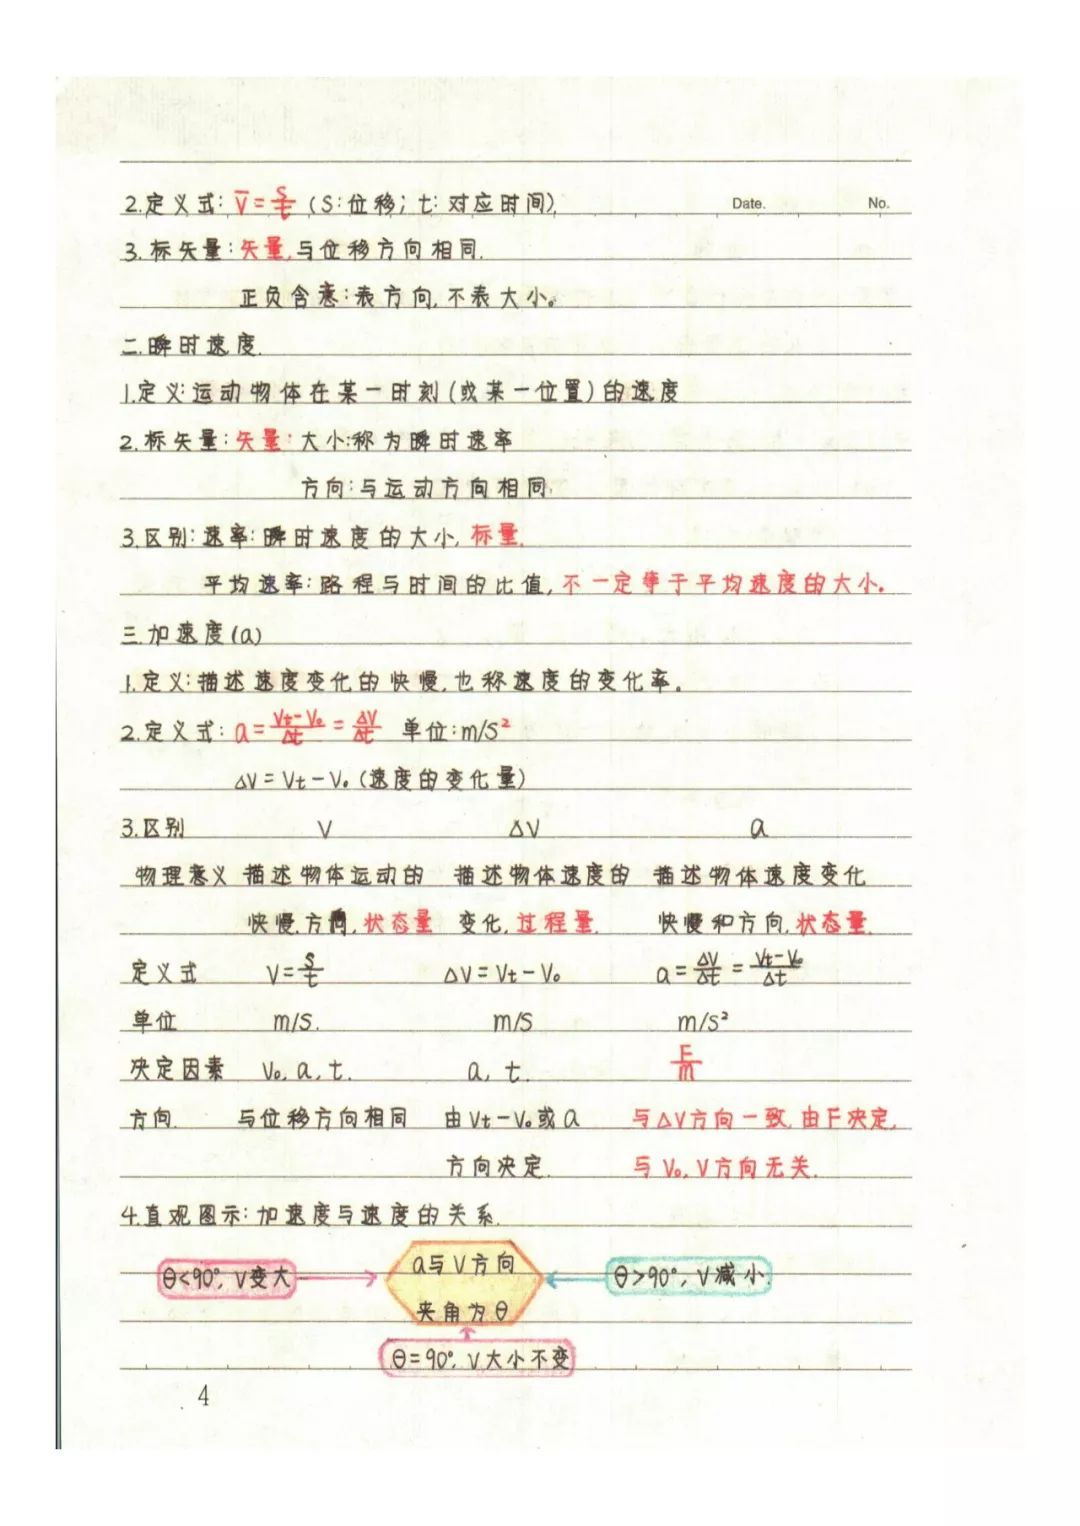 Date. No.
2.定义式: V̄=S/t (S:位移; t:对应时间)
3.标矢量:矢量,与位移方向相同.
正负含意:表方向,不表大小。
二.瞬时速度.
1.定义:运动物体在某一时刻(或某一位置)的速度
2.标矢量:矢量:大小:称为瞬时速率
方向:与运动方向相同.
3.区别:速率:瞬时速度的大小,标量.
平均速率:路程与时间的比值,不一定等于平均速度的大小.
三.加速度(a)
1.定义:描述速度变化的快慢,也称速度的变化率。
2.定义式: a=(Vt-V₀)/Δt=ΔV/Δt 单位:m/s²
ΔV=Vt-V₀(速度的变化量)
3.区别 V ΔV a
物理意义 描述物体运动的 描述物体速度的 描述物体速度变化
快慢.方向,状态量 变化,过程量. 快慢和方向,状态量.
定义式 V=S/t ΔV=Vt-V₀ a=ΔV/Δt=(Vt-V₀)/Δt
单位 m/s. m/s m/s²
决定因素 V₀,a,t. a,t. F/m
方向. 与位移方向相同 由Vt-V₀或a 与ΔV方向一致,由F决定,
方向决定. 与V₀,V方向无关.
4.直观图示:加速度与速度的关系.
θ<90°,V变大
a与V方向
夹角为θ
θ>90°,V减小.
θ=90°,V大小不变
4